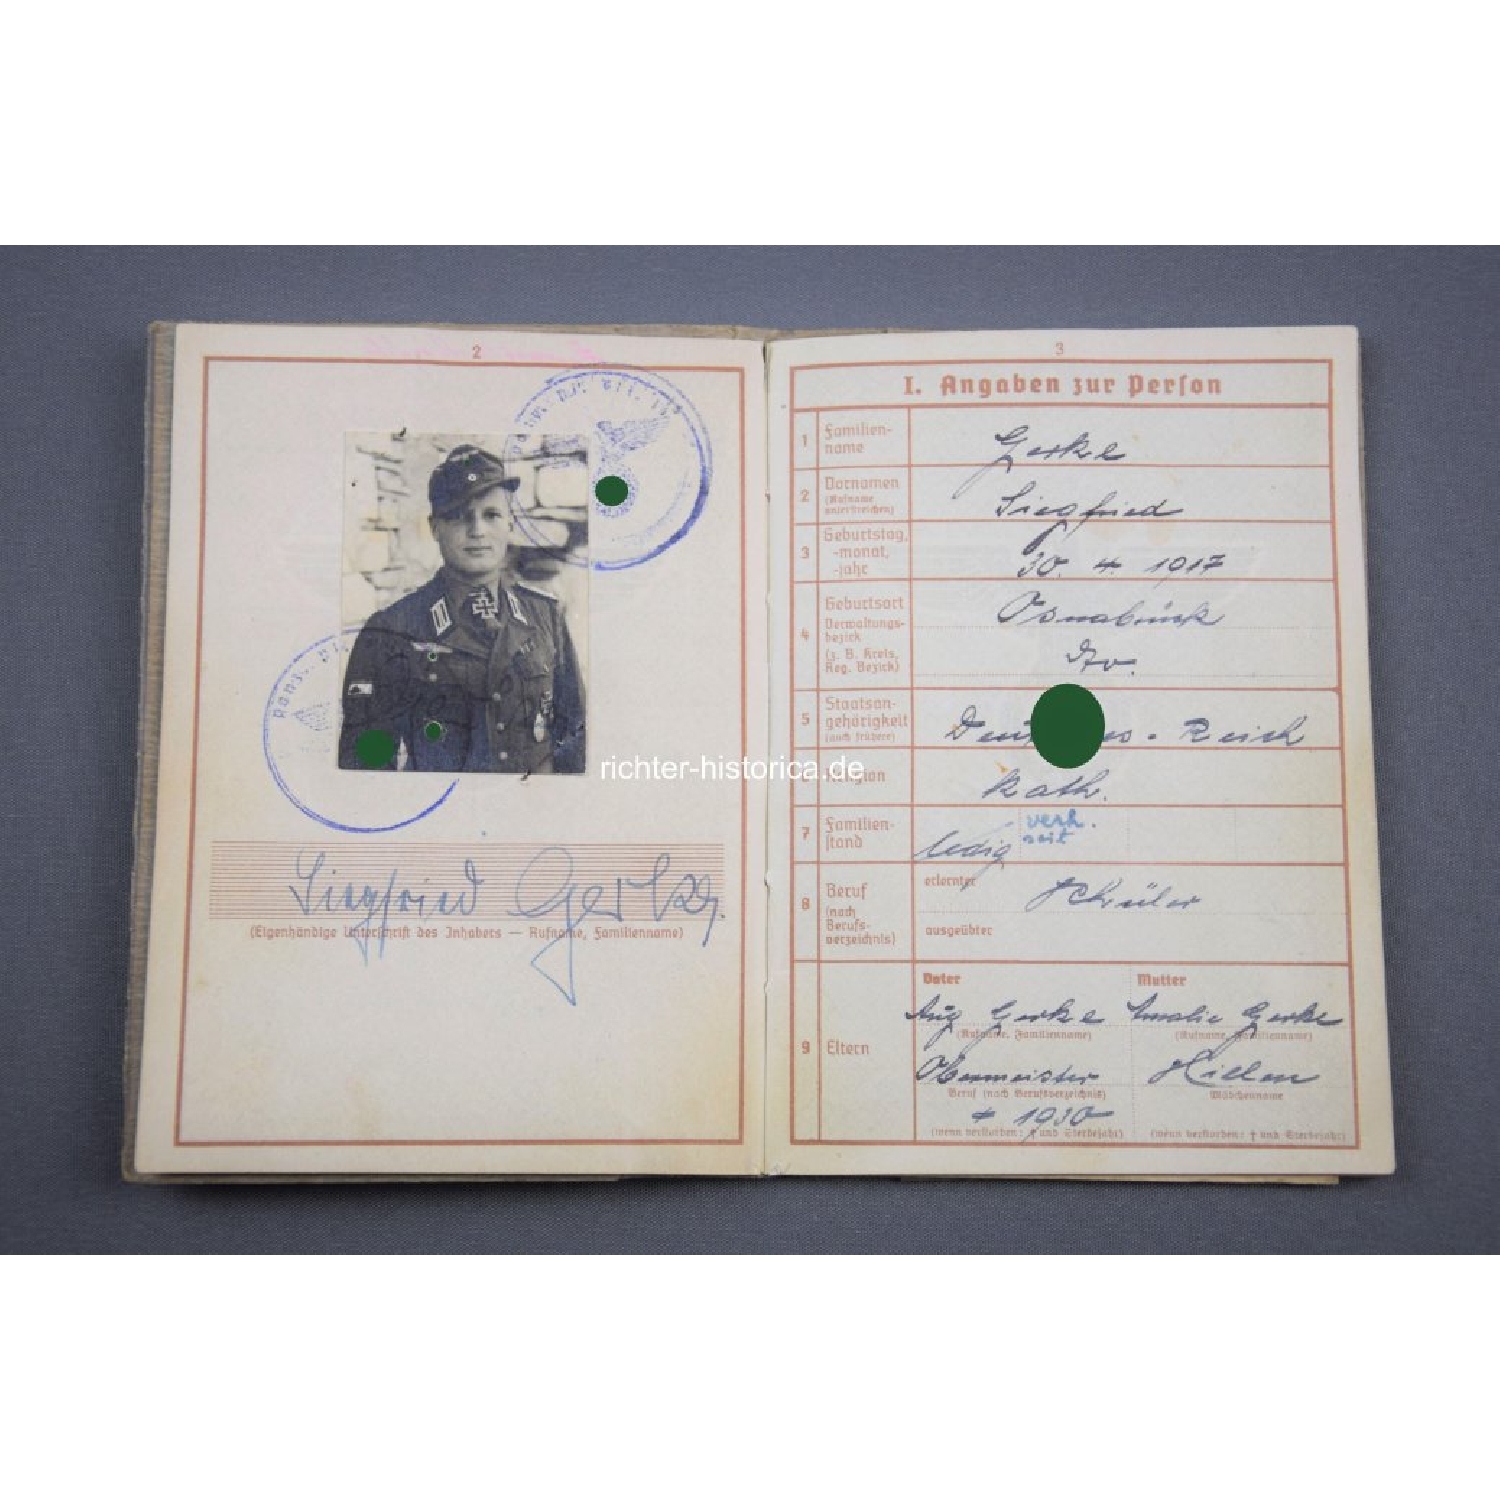 2
richter-historica.de
Siegfried Gerke.
(Eigenhändige Unterschrift des Inhabers — Rufname, Familienname)
3
I. Angaben zur Person
1 Familien-
name
Gerke
2 Vornamen
(Rufname
unterstreichen)
Siegfried
3 Geburtstag,
-monat,
-jahr
30. 4. 1917
4 Geburtsort
Verwaltungs-
bezirk
(z. B. Kreis,
Reg. Bezirk)
Osnabrück
5 Staatsan-
gehörigkeit
(auch frühere)
Reich
Religion
Kath.
7 Familien-
stand
ledig
verh.
seit
8 Beruf
(nach
Berufs-
verzeichnis)
erlernter
Schüler
ausgeübter
9 Eltern
Vater Mutter
Aug Gerke Amalie Gerke
(Rufname, Familienname) (Rufname, Familienname)
Obermeister
Beruf (nach Berufsverzeichnis) Mädchenname
+ 1930
(wenn verstorben: † und Sterbejahr) (wenn verstorben: † und Sterbejahr)